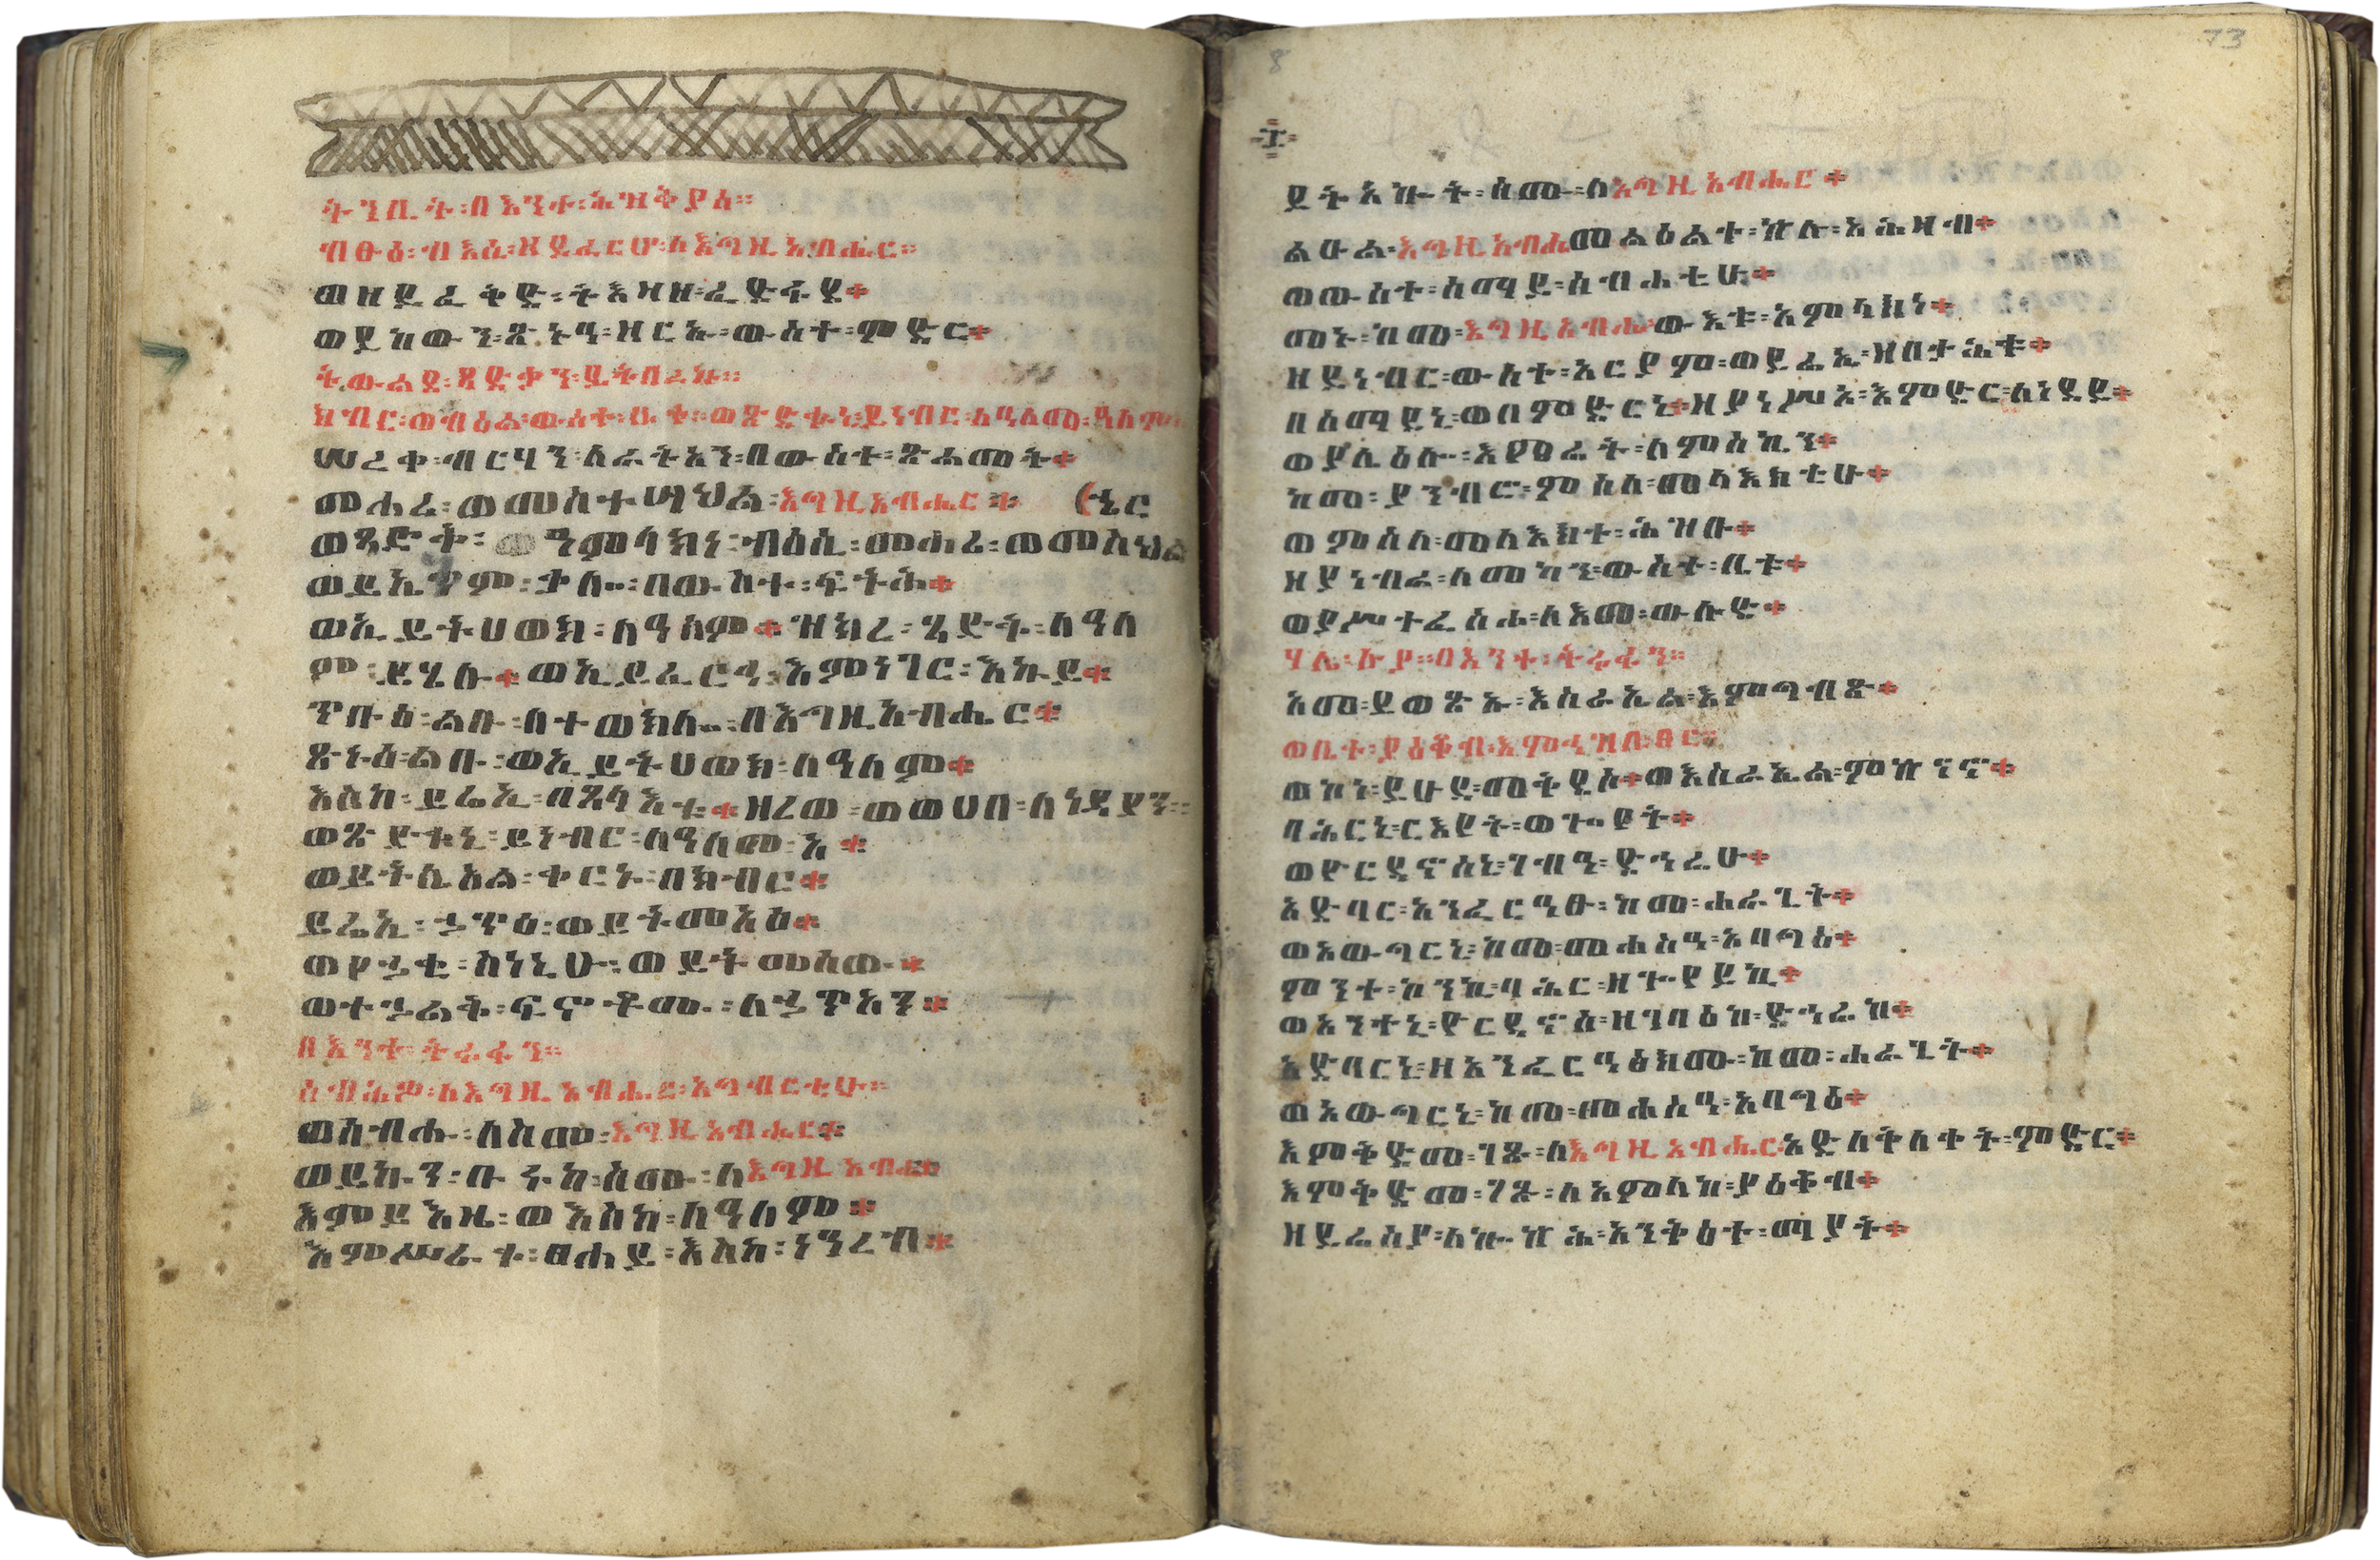 ትንቢት፡በእንተ፡ሕዝቅያስ።
ብፁዕ፡ብእሲ፡ዘይፈርሆ፡ለእግዚአብሔር።
ወዘይፈቅድ፡ትእዛዘ፡ፈድፋደ፨
ወይከውን፡ጽኑዓ፡ዘርኡ፡ውስተ፡ምድር፨
ትውልደ፡ጻድቃን፡ይትባረኩ።
ክብር፡ወብዕል፡ውስተ፡ቤቱ፡ወጽድቁኒ፡ይነብር፡ለዓለመ፡ዓለም
ሠረቀ፡ብርሃን፡ለራትአን፡በውስተ፡ጽልመት፨
መሐሪ፡ወመስተሣህል፡እግዚአብሔር፨ (ኄር
ወጻድቅ፡ዓምላክነ፡ብእሲ፡መሐሪ፡
ቃሎ፡በውስተ፡ፍትሕ፨
ወኢይትሀወክ፡ለዓለም፨ዝክረ፡ጻድቅ፡ለዓለ
ም፡ይሄሉ፨ወኢይፈርህ፡እምነገር፡እኩይ፨
ጥቡዕ፡ልቡ፡ለተወክሎ፡በእግዚአብሔር፨
ጽኑዕ፡ልቡ፡ወኢይትሀወክ፡ለዓለም፨
እስከ፡ይሬኢ፡በጸላእቱ፨ዘረወ፡ወወሀበ፡ለነዳያን።
ወጽድቁኒ፡ይነብር፡ለዓለመ፡ዓ፨
ወይትሌዓል፡ቀርኑ፡በክብር፨
ይሬኢ፡ኃጥእ፡ወይትመዓዕ፨
ወየሐቂ፡ስነኒሁ፡ወይትመሰው፨
ወተኃልቅ፡ፍትወቶሙ፡ለኃጥአን፨
በእንተ፡ትሩፋን።
ሰብሕዎ፡ለእግዚአብሔር፡አግብርቲሁ።
ወሰብሑ፡ለስመ፡እግዚአብሔር፨
ወይኩን፡ቡሩከ፡ስሙ፡ለእግዚአብሔር
እምይእዜ፡ወእስከ፡ለዓለም፨
እምሥራቀ፡ፀሐይ፡እስከ፡ነዓረብ፨
ይትአኰት፡ስሙ፡ለእግዚአብሔር፨
ልዑል፡እግዚአብሔመልዕልተ፡ኵሉ፡አሕዛብ፨
ወውስተ፡ሰማይ፡ስብሐቲሁ፨
መኑ፡ከመ፡እግዚአብሔውእቱ፡አምላክነ፨
ዘይነብር፡ውስተ፡አርያም፡ወይሬኢ፡ዘበታሕቱ፨
በሰማይኒ፡ወበምድርኒ፨ዘያነሥኦ፡እምድር፡ለነዳይ፨
ወያሌዕሎ፡እመሬት፡ለምስኪን፨
ከመ፡ያንብሮ፡ምስለ፡መላእክቲሁ፨
ወምስለ፡መላእክተ፡ሕዝቡ፨
ዘያነብራ፡ለመካን፡ውስተ፡ቤቱ፨
ወያሥተፌስሓ፡ለእመ፡ውሉድ፨
ሃሌ፡ሉያ፡በእንተ፡ትሩፋን።
አመ፡ይወጽኡ፡እስራኤል፡እምግብጽ፨
ወቤተ፡ያዕቆብ፡እምሕዝብ፡ፀር።
ወኮነ፡ይሁዳ፡መቅደሶ፨ወእስራኤል፡ምኵናኖ፨
ባሕርኒ፡ርእየት፡ወጐየት፨
ወዮርዳኖስኒ፡ገብአ፡ድኅሬሁ፨
አድባር፡አንፈርዓፁ፡ከመ፡ሐራጊት፨
ወአውግርኒ፡ከመ፡መሐስዓ፡አባግዕ፨
ምንተ፡ኮንኪ፡ባሕር፡ዘጐየይኪ፨
ወአንተኒ፡ዮርዳኖስ፡ዘገባዕከ፡ድኅሬከ፨
አድባርኒ፡ዘአንፈርዓፅክሙ፡ከመ፡ሐራጊት፨
ወአውግርኒ፡ከመ፡መሐስዓ፡አባግዕ፨
እምቅድመ፡ገጹ፡ለእግዚአብሔር፡አድለቅለቀት፡ምድር፨
እምቅድመ፡ገጹ፡ለአምላከ፡ያዕቆብ፨
ዘይሬስያ፡ለኰኵሕ፡አንቅዕተ፡ማያት፨
73